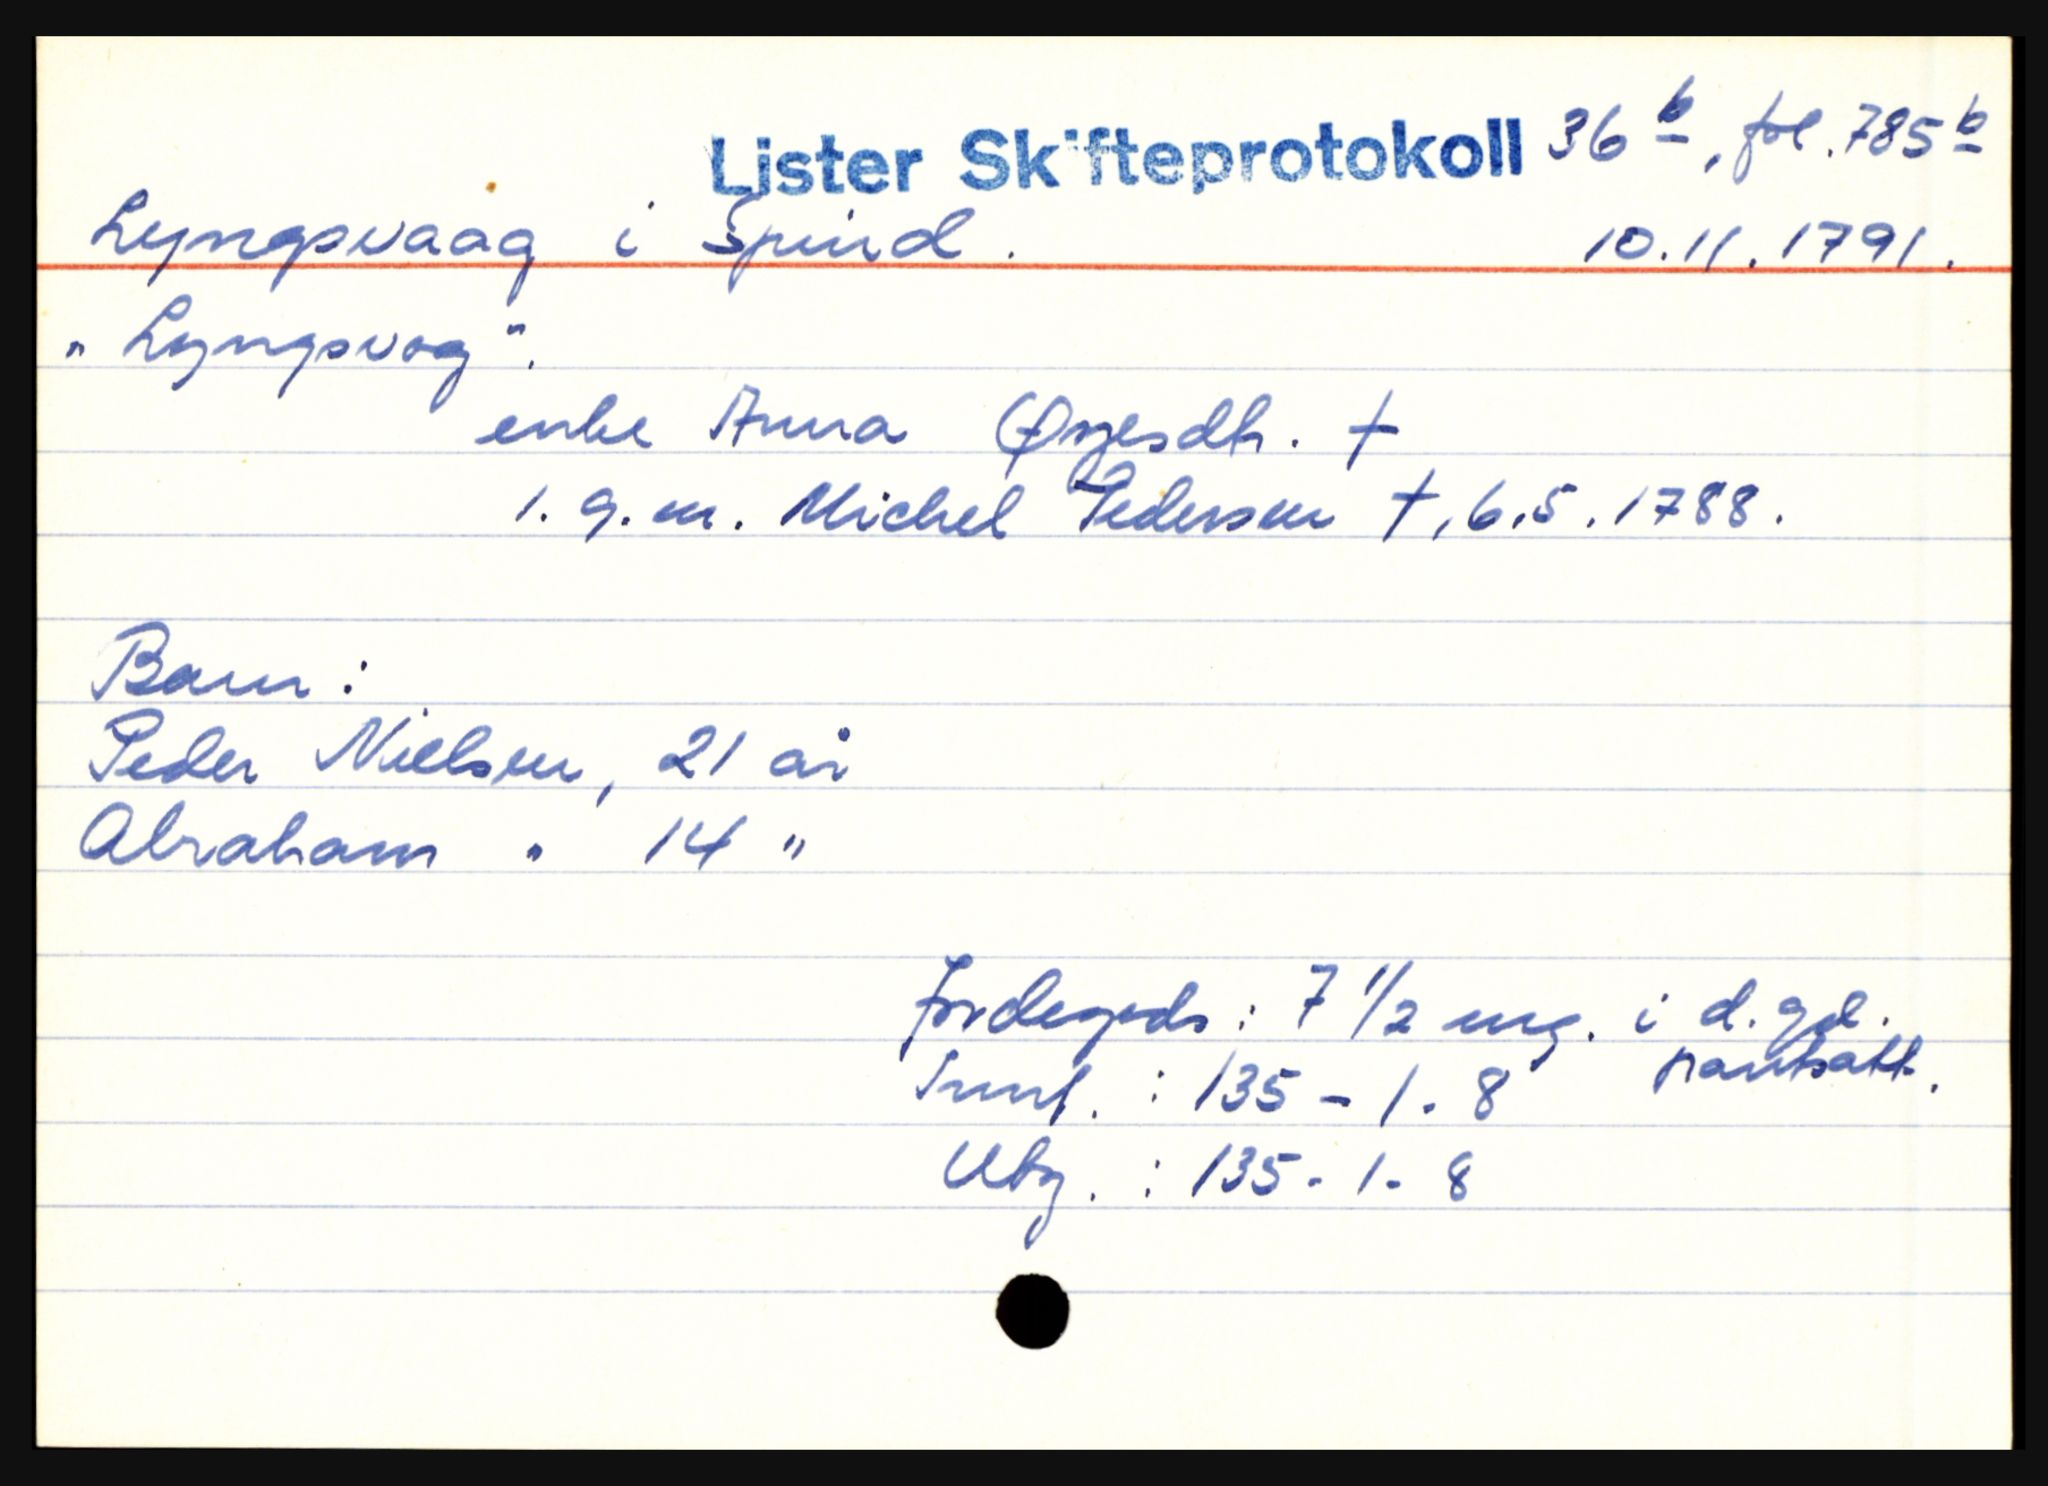 Lister Skifteprotokoll 36 b, fol. 785 b
Lyngsvaag i Spind. 10.11.1791.
"Lyngsvog".
enke Anna Ørjesdtr. †
1. g. m. Michel Pedersen †, 6.5.1788.
Barn:
Peder Nielsen, 21 år
Abraham " 14 "
Jordegods: 7 1/2 mg. i d. gd.
pantsatt.
Innt. : 135 - 1 - 8
Utg. : 135 - 1 - 8